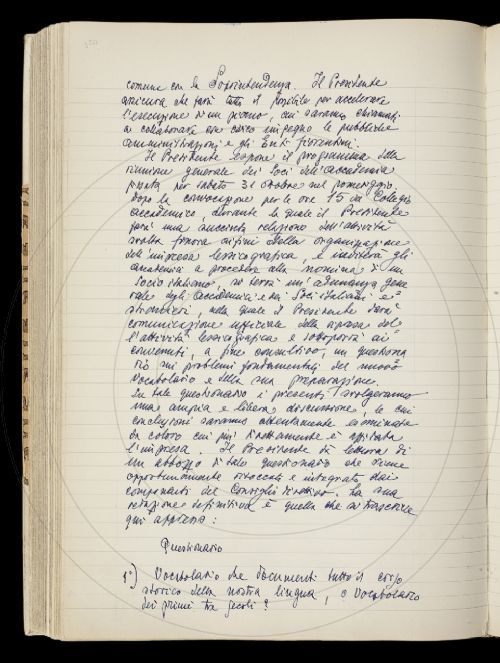 comune con la Soprintendenza. Il Presidente
assicura che farà tutto il possibile per accelerare
l'esecuzione di un piano, cui saranno chiamati
a collaborare con carico impegno le pubbliche
amministrazioni e gli Enti fiorentini.
Il Presidente espone il programma della
riunione generale dei Soci dell'accademia
fissata per sabato 31 ottobre nel pomeriggio.
Dopo la convocazione per le ore 15 del Collegio
accademico, durante la quale il Presidente
farà una succinta relazione dell'attività
svolta finora ai fini della organizzazione
dell'impresa lessicografica, e inviterà gli
accademici a procedere alla nomina di un
Socio italiano, si terrà un'adunanza gene
rale degli accademici e dei Soci italiani e
stranieri, nella quale il Presidente darà
comunicazione ufficiale della ripresa del
l'attività lessicografica e sottoporrà ai
convenuti, a fine consultivo, un questiona
rio sui problemi fondamentali del nuovo
Vocabolario e della sua preparazione.
Su tale questionario i presenti svolgeranno
una ampia e libera discussione, le cui
conclusioni saranno attentamente esaminate
da coloro cui più direttamente è affidata
l'impresa. Il Presidente dà lettura di
un abbozzo di tale questionario che viene
opportunamente ritoccato e integrato dai
componenti del Consiglio direttivo. La sua
redazione definitiva è quella che si trascrive
qui appresso:
Questionario
1°) Vocabolario che documenti tutto il corso
storico della nostra lingua, o Vocabolario
dei primi tre secoli?